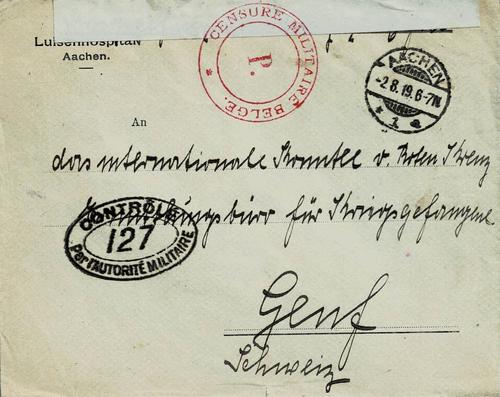 Luisenhospital
Aachen.
CENSURE MILITAIRE BELGE.
P.
AACHEN
-2.8.19.6-7N
* 1 e
An
das internationale Komitee v. Roten Kreuz
für Kriegsgefangene
CONTRÔLE
127
Par l'AUTORITÉ MILITAIRE
Genf
Schweiz